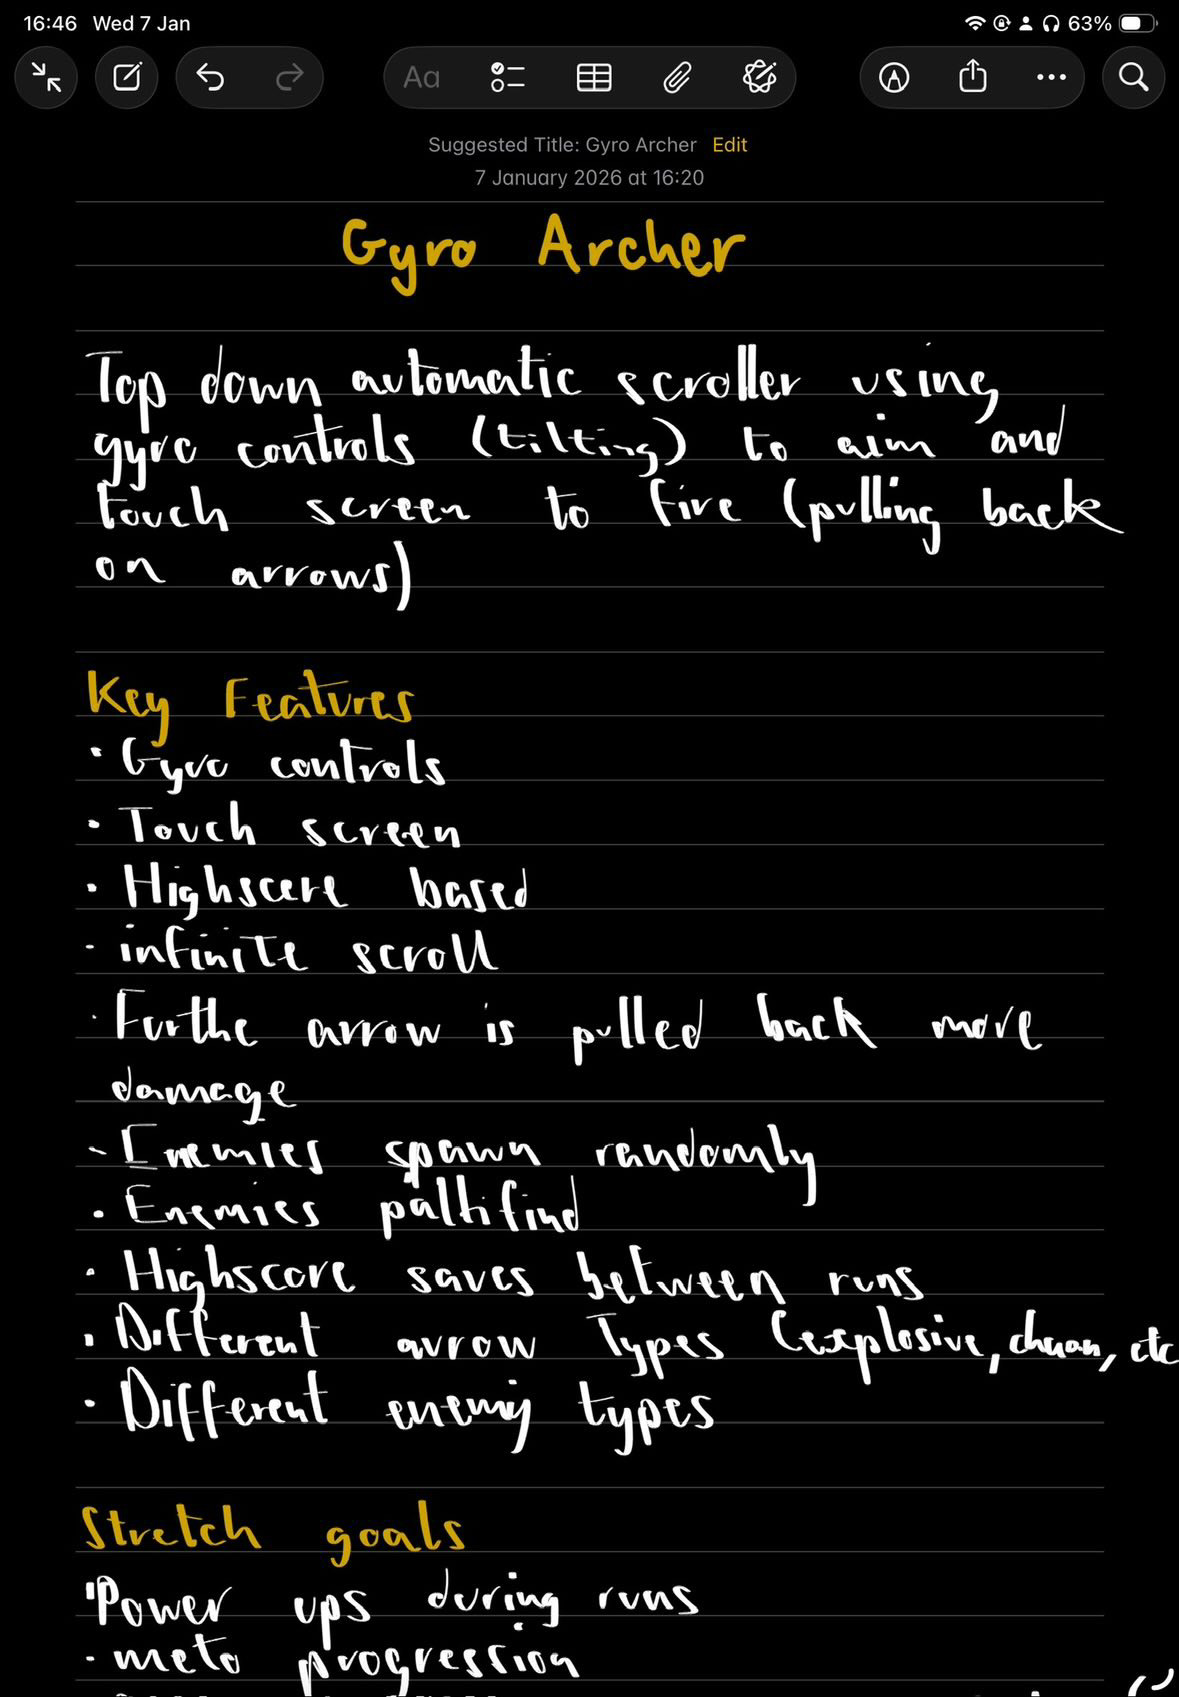 16:46 Wed 7 Jan 63%
Aa
Suggested Title: Gyro Archer Edit
7 January 2026 at 16:20
Gyro Archer
Top down automatic scroller using
gyro controls (tilting) to aim and
touch screen to fire (pulling back
on arrows)
Key Features
• Gyro controls
• Touch screen
• Highscore based
• infinite scroll
• Furthe arrow is pulled back more
damage
• Enemies spawn randomly
• Enemies pathfind
• Highscore saves between runs
• Different arrow Types (explosive, etc
• Different enemy types
Stretch goals
• Power ups during runs
• meta progression